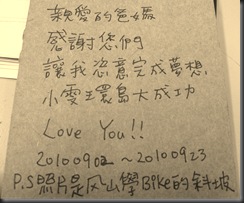 親愛的爸媽
感謝您們
讓我恣意完成夢想
小雯環島大成功
Love You!!
20100902 ~ 20100923
P.S照片是风山學Bike的斜坡